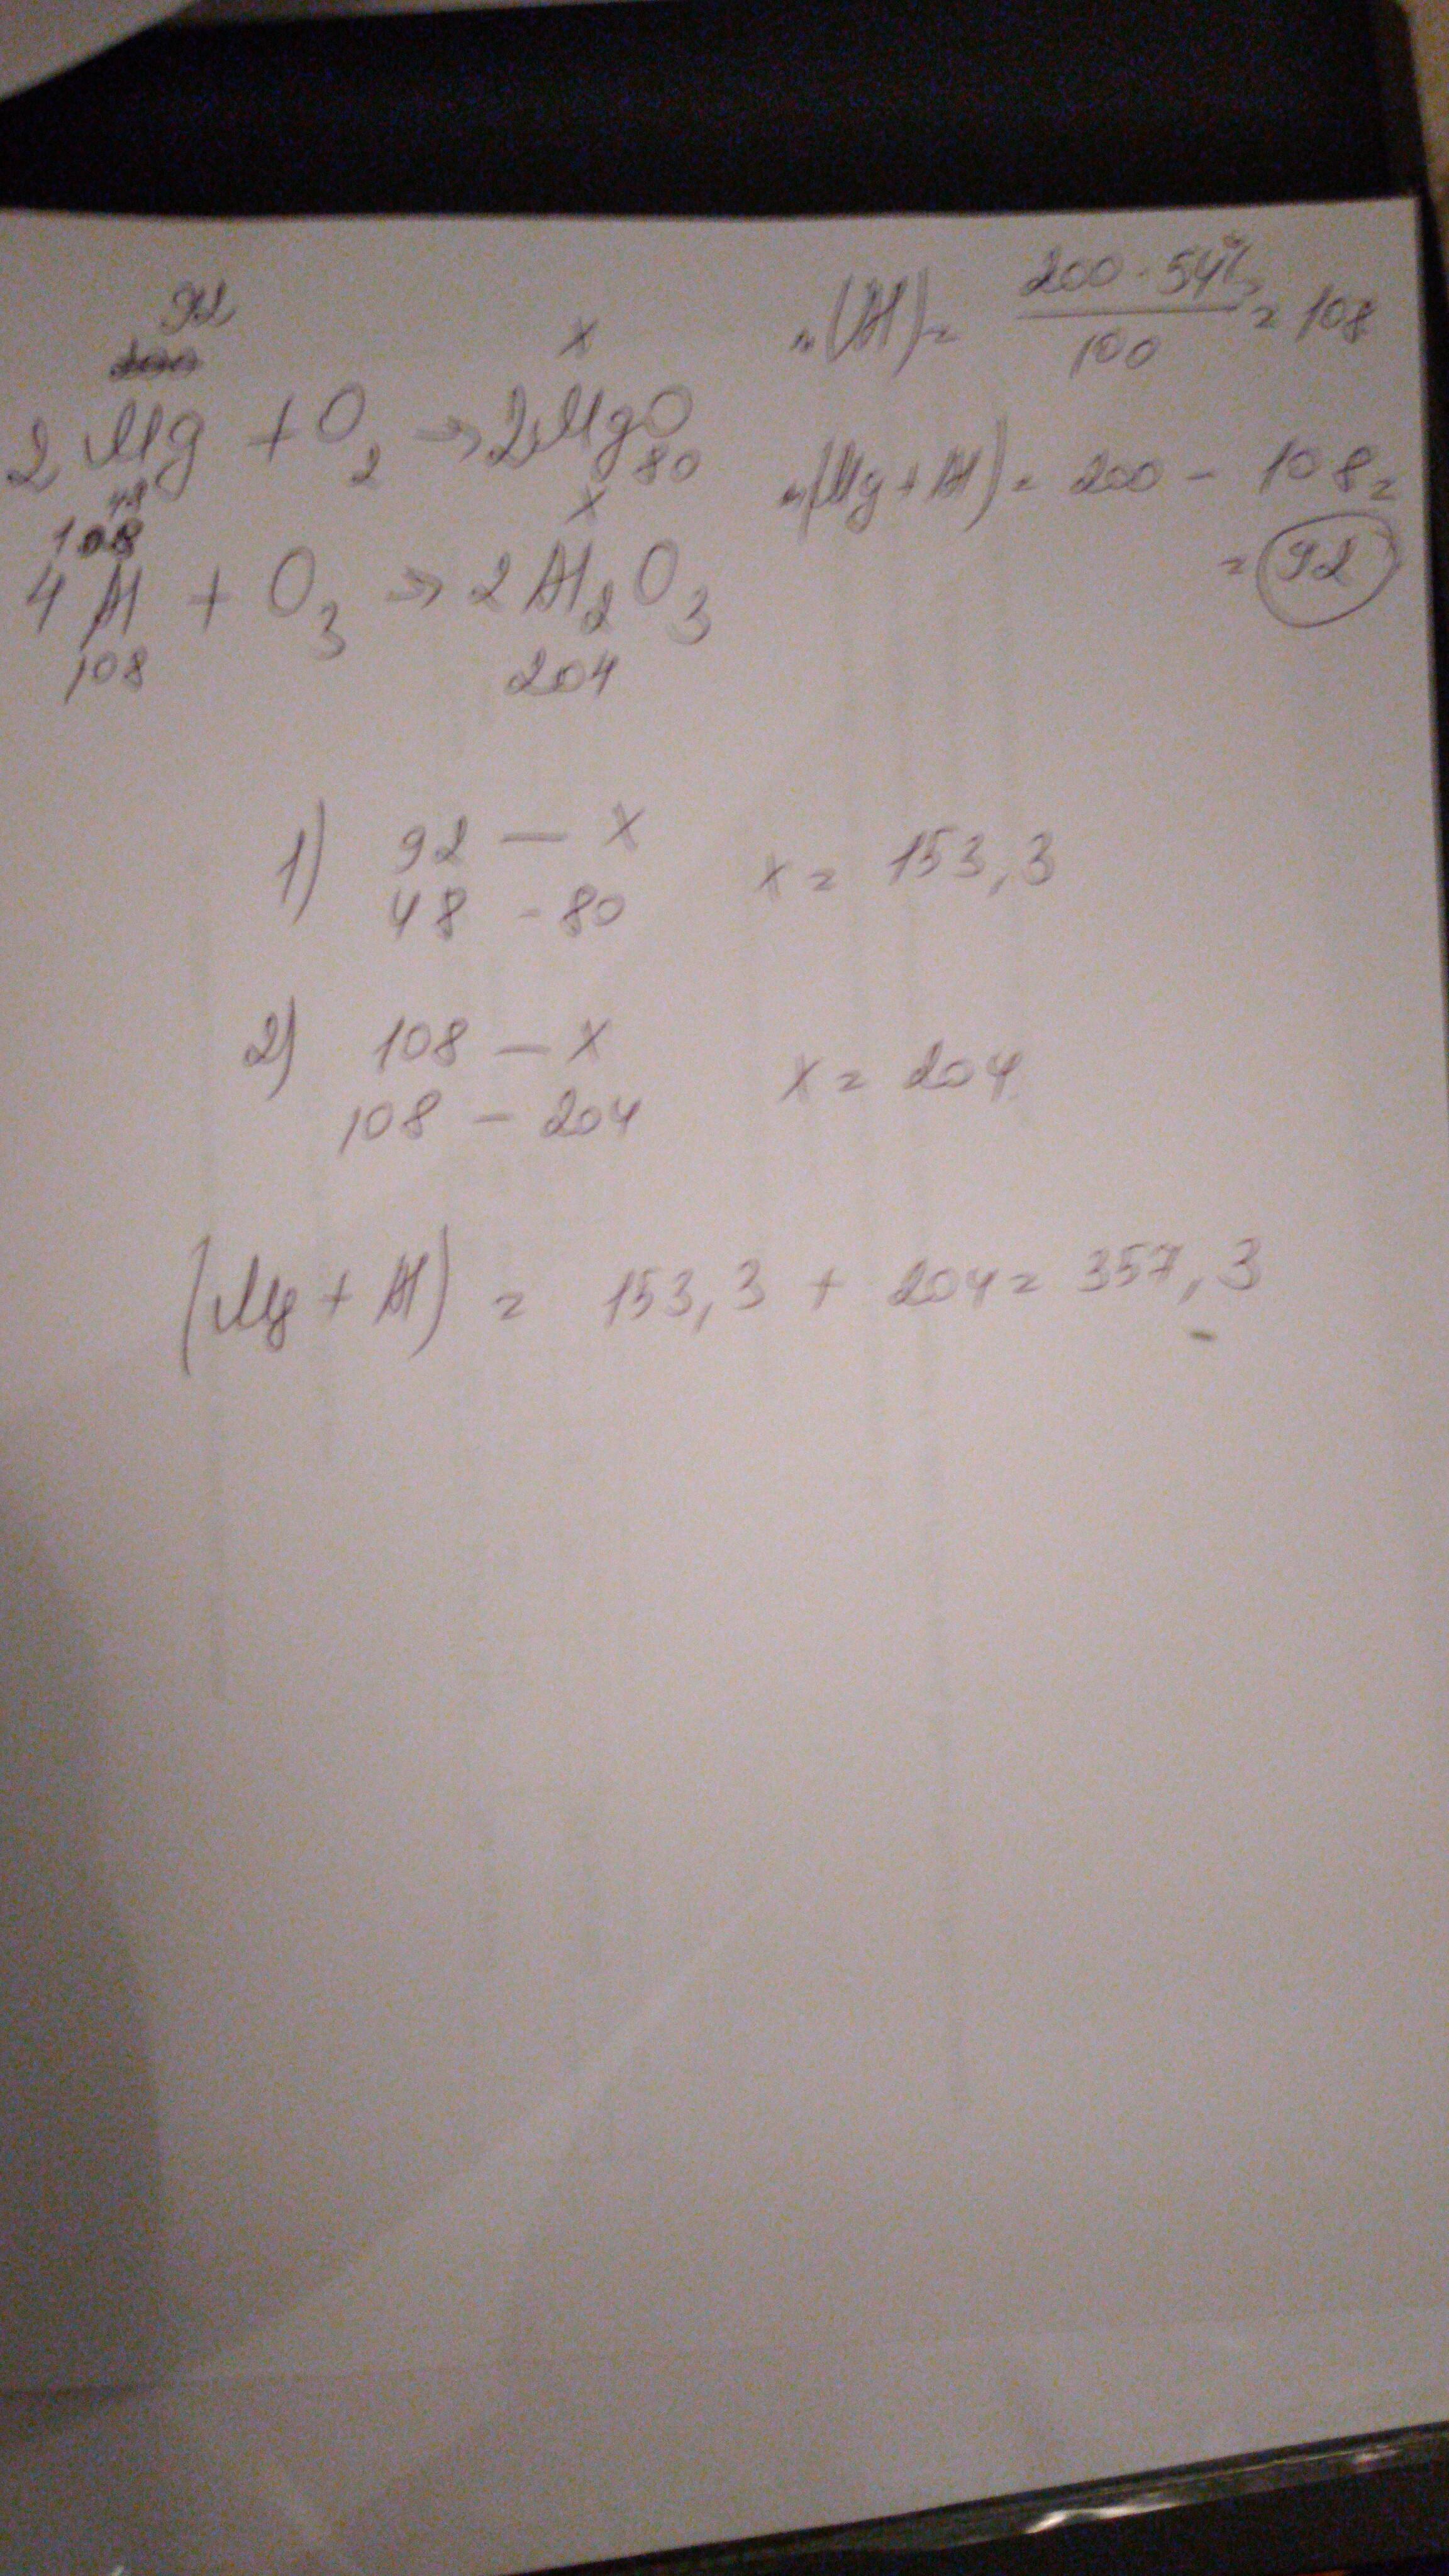 92
x
2Mg + O₂ → 2MgO
48
80
108
x
4Al + O₃ → 2Al₂O₃
108
204
m(Al) = 200 · 54% / 100 = 108
m(Mg + Al) = 200 - 108 =
= 92
1) 92 — x
48 - 80
x = 153,3
2) 108 — x
108 — 204
x = 204
(Mg + Al) = 153,3 + 204 = 357,3